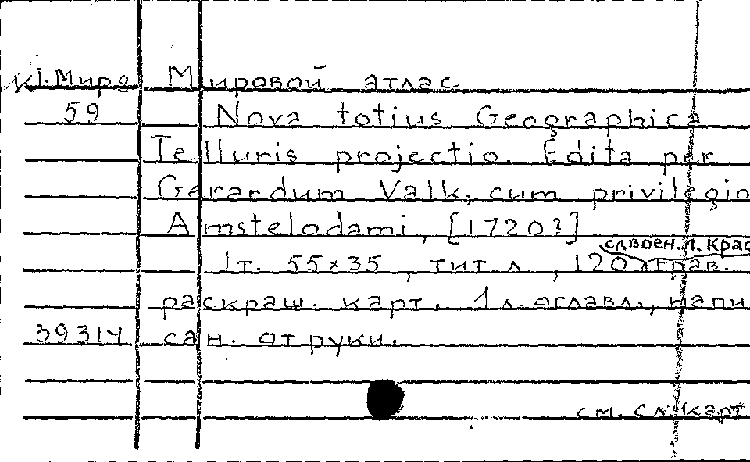 К1.Мира Мировой атлас
59 Nova totius Geographica
Telluris projectio. Edita per
Gerardum Valk, cum privilegio
Amstelodami, [1720?]
сдвоен. л. крас
1т. 55x35, тит. л., 120 грав.
раскраш. карт, 1 л. оглавл., напи
39314 сан. от руки.
см. сл. карт